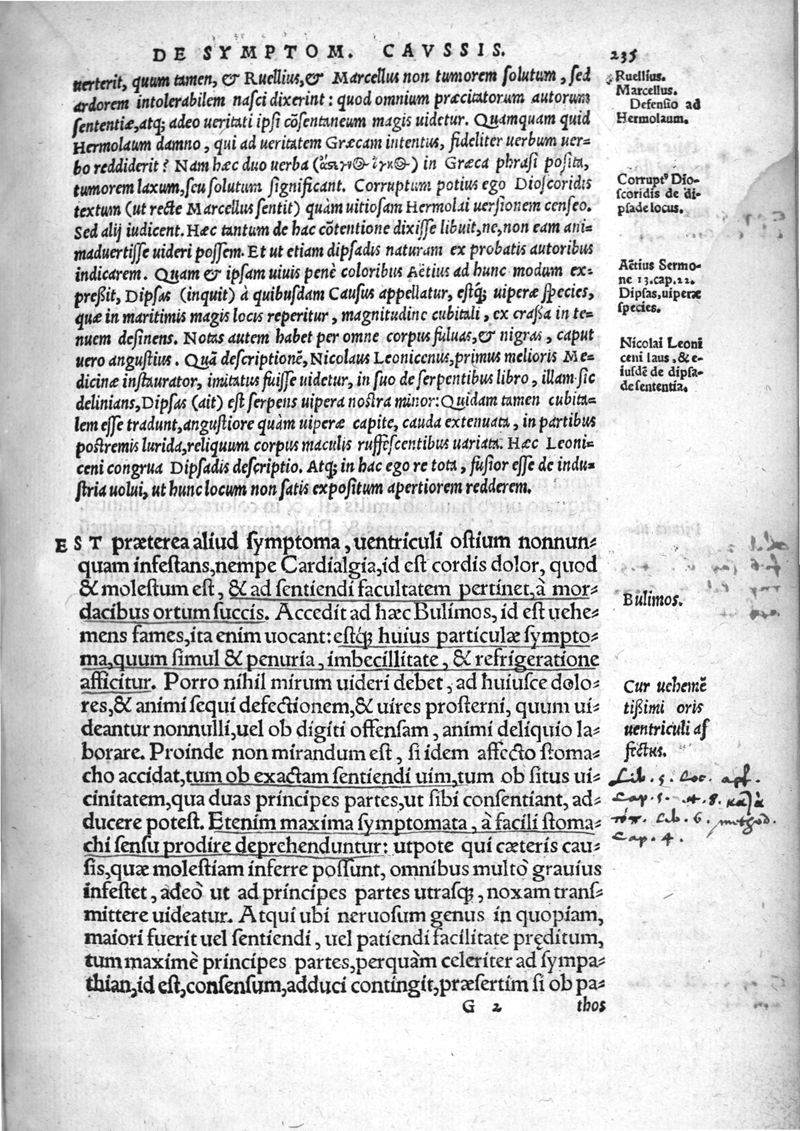 DE SYMPTOM. CAVSSIS. 235
uerterit, quum tamen, & Ruellius, & Marcellus non tumorem solutum, sed
ardorem intolerabilem nasci dixerint: quod omnium præcitatorum autorum
sententiæ, atq; adeo ueritati ipsi cõsentaneum magis uidetur. Quamquam quid
Hermolaum damno, qui ad ueritatem Græcam intentus, fideliter uerbum uer-
bo reddiderit? Nam hæc duo uerba ( ) in Græca phrasi posita,
tumorem laxum, seu solutum significant. Corruptum potius ego Dioscoridis
textum (ut recte Marcellus sentit) quàm uitiosam Hermolai uersionem censeo.
Sed alij iudicent. Hæc tantum de hac cõtentione dixisse libuit, ne, non eam ani-
maduertisse uideri possem. Et ut etiam dipsadis naturam ex probatis autoribus
indicarem. Quam & ipsam uiuis penè coloribus Aëtius ad hunc modum ex-
preßit, Dipsas (inquit) à quibusdam Causus appellatur, estq; uiperæ species,
quæ in maritimis magis locis reperitur, magnitudine cubitali, ex crassa in te-
nuem desinens. Notas autem habet per omne corpus fuluas, & nigras, caput
uero angustius. Quã descriptionẽ, Nicolaus Leonicenus, primus melioris Me-
dicinæ instaurator, imitatus fuisse uidetur, in suo de serpentibus libro, illam sic
delinians, Dipsas (ait) est serpens uipera nostra minor: Quidam tamen cubita-
lem esse tradunt, angustiore quàm uiperæ capite, cauda extenuata, in partibus
postremis lurida, reliquum corpus maculis ruffescentibus uariata. Hæc Leoni-
ceni congrua Dipsadis descriptio. Atq; in hac ego re tota, fusior esse de indu-
stria uolui, ut hunc locum non satis expositum apertiorem redderem.
EST præterea aliud symptoma, uentriculi ostium nonnun-
quam infestans, nempe Cardialgia, id est cordis dolor, quod
& molestum est, & ad sentiendi facultatem pertinet, à mor-
dacibus ortum succis. Accedit ad hæc Bulimos, id est uehe-
mens fames, ita enim uocant: estq; huius particulæ sympto-
ma, quum simul & penuria, imbecillitate, & refrigeratione
afficitur. Porro nihil mirum uideri debet, ad huiusce dolo-
res, & animi sequi defectionem, & uires prosterni, quum ui-
deantur nonnulli, uel ob digiti offensam, animi deliquio la-
borare. Proinde non mirandum est, si idem affecto stoma-
cho accidat, tum ob exactam sentiendi uim, tum ob situs ui-
cinitatem, qua duas principes partes, ut sibi consentiant, ad-
ducere potest. Etenim maxima symptomata, à facili stoma-
chi sensu prodire deprehenduntur: utpote qui cæteris cau-
sis, quæ molestiam inferre possunt, omnibus multò grauius
infestet, adeò ut ad principes partes utrasq;, noxam trans-
mittere uideatur. Atqui ubi neruosum genus in quopiam,
maiori fuerit uel sentiendi, uel patiendi facilitate pręditum,
tum maximè principes partes, perquàm celeriter ad sympa-
thian, id est, consensum, adduci contingit, præsertim si ob pa-
G 2 thos
Ruellius.
Marcellus.
Defensio ad
Hermolaum.
Corrupt⁹ Dio-
scoridis de di-
psade locus.
Aëtius Sermo-
ne 13. cap. 22.
Dipsas, uiperæ
species.
Nicolai Leoni
ceni laus, & e-
iusdẽ de dipsa-
de sententia.
Bulimos.
Cur uehemẽ
tißimi oris
uentriculi af
fectus.
Lib. 5. Loc. aff.
Cap. 5. 
Lib. 6. method.
Cap. 4.